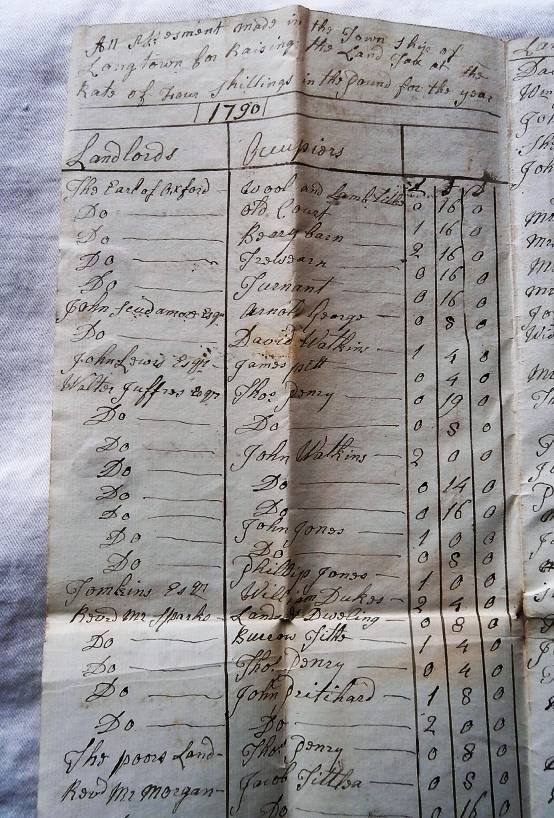 All Assesment made in the Town Ship of
Longtown for Raising the Land Tax at the
Rate of Four Shillings in the Pound for the year
1790
Landlords Occupiers
The Earl of Oxford Wool and Lamb Tithe 0 16 0
Do Old Court 1 16 0
Do barn 2 16 0
Do Trewearn 0 16 0
Do Turnant 0 16 0
John Scudamore Esqr Arnold George 0 8 0
Do David Watkins 1 4 0
John Lewis Esqr James Pitt 0 4 0
Walter Jeffres Esqr Thos Penry 0 19 0
Do Do 0 8 0
Do John Watkins 2 0 0
Do Do 0 14 0
Do Do 0 16 0
Do John Jones 1 0 0
Do Do 0 8 0
Do Phillip Jones 1 0 0
Tomkins Esqr William Dukes 2 4 0
Revd Mr Sparks Lands & Dweling 0 8 0
Do Burrow Tithe 1 4 0
Do Thos Penry 0 4 0
Do John Pritchard 1 8 0
Do Do 2 0 0
The poors Land Thos Penry 0 8 0
Revd Mr Morgan Jacob 0 8 0
Do 0 16 0